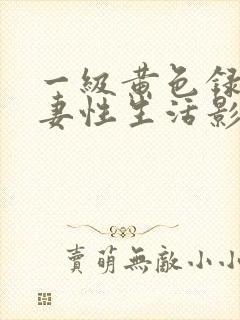 一級黄色録
妻性生活影
賣萌無敵小小